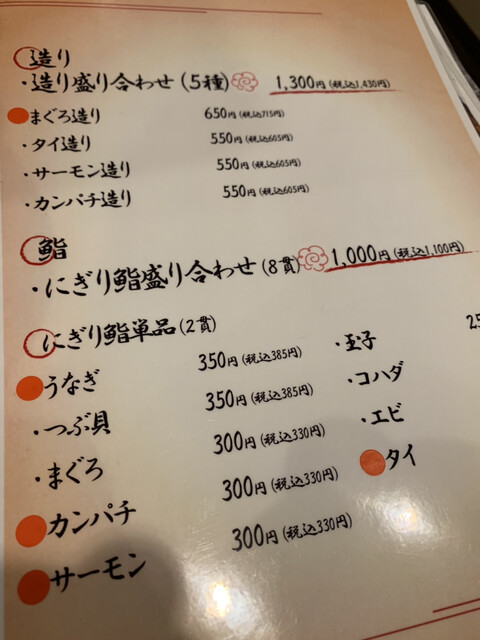 造り
・造り盛り合わせ(5種) 1,300円(税込1,430円)
まぐろ造り 650円(税込715円)
・タイ造り 550円(税込605円)
・サーモン造り 550円(税込605円)
・カンパチ造り 550円(税込605円)
鮨
・にぎり鮨盛り合わせ(8貫) 1,000円(税込1,100円)
にぎり鮨単品(2貫)
うなぎ 350円(税込385円)
・つぶ貝 350円(税込385円)
・まぐろ 300円(税込330円)
カンパチ 300円(税込330円)
サーモン 300円(税込330円)
・玉子 25
・コハダ
・エビ
タイ